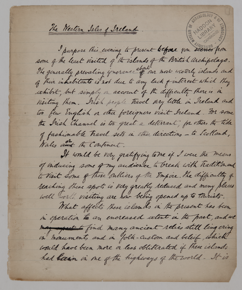 The Western Isles of Ireland
I purpose this evening to present before you scenes from
some of the least visited of the islands of the British Archipelago.
The generally prevailing ignorance of our own westerly islands and
of their inhabitants is not due to any lack of interest which they
exhibit, but simply on account of the difficulty there is in
visiting them. Irish people travel very little in Ireland and
too few English or other foreigners visit Ireland. For some
the Irish Channel is so great a deterrent, for others the tide
of fashionable travel sets in other directions – to Scotland,
Wales and the Continent.
It would be very gratifying to me if I were the means
of inducing some of my audience to break with traditions and
to visit some of these outliers of the Empire. The difficulty of
reaching these spots is very greatly reduced and many places
well worth visiting are now being opened up to tourists.
What affects these islands in the present has been
in operation to an increased extent in the past, and so
we find many ancient relics still lingering
in monuments and in folk custom and belief, which
would have been more or less obliterated if these islands
had been in one of the highways of the world. It is